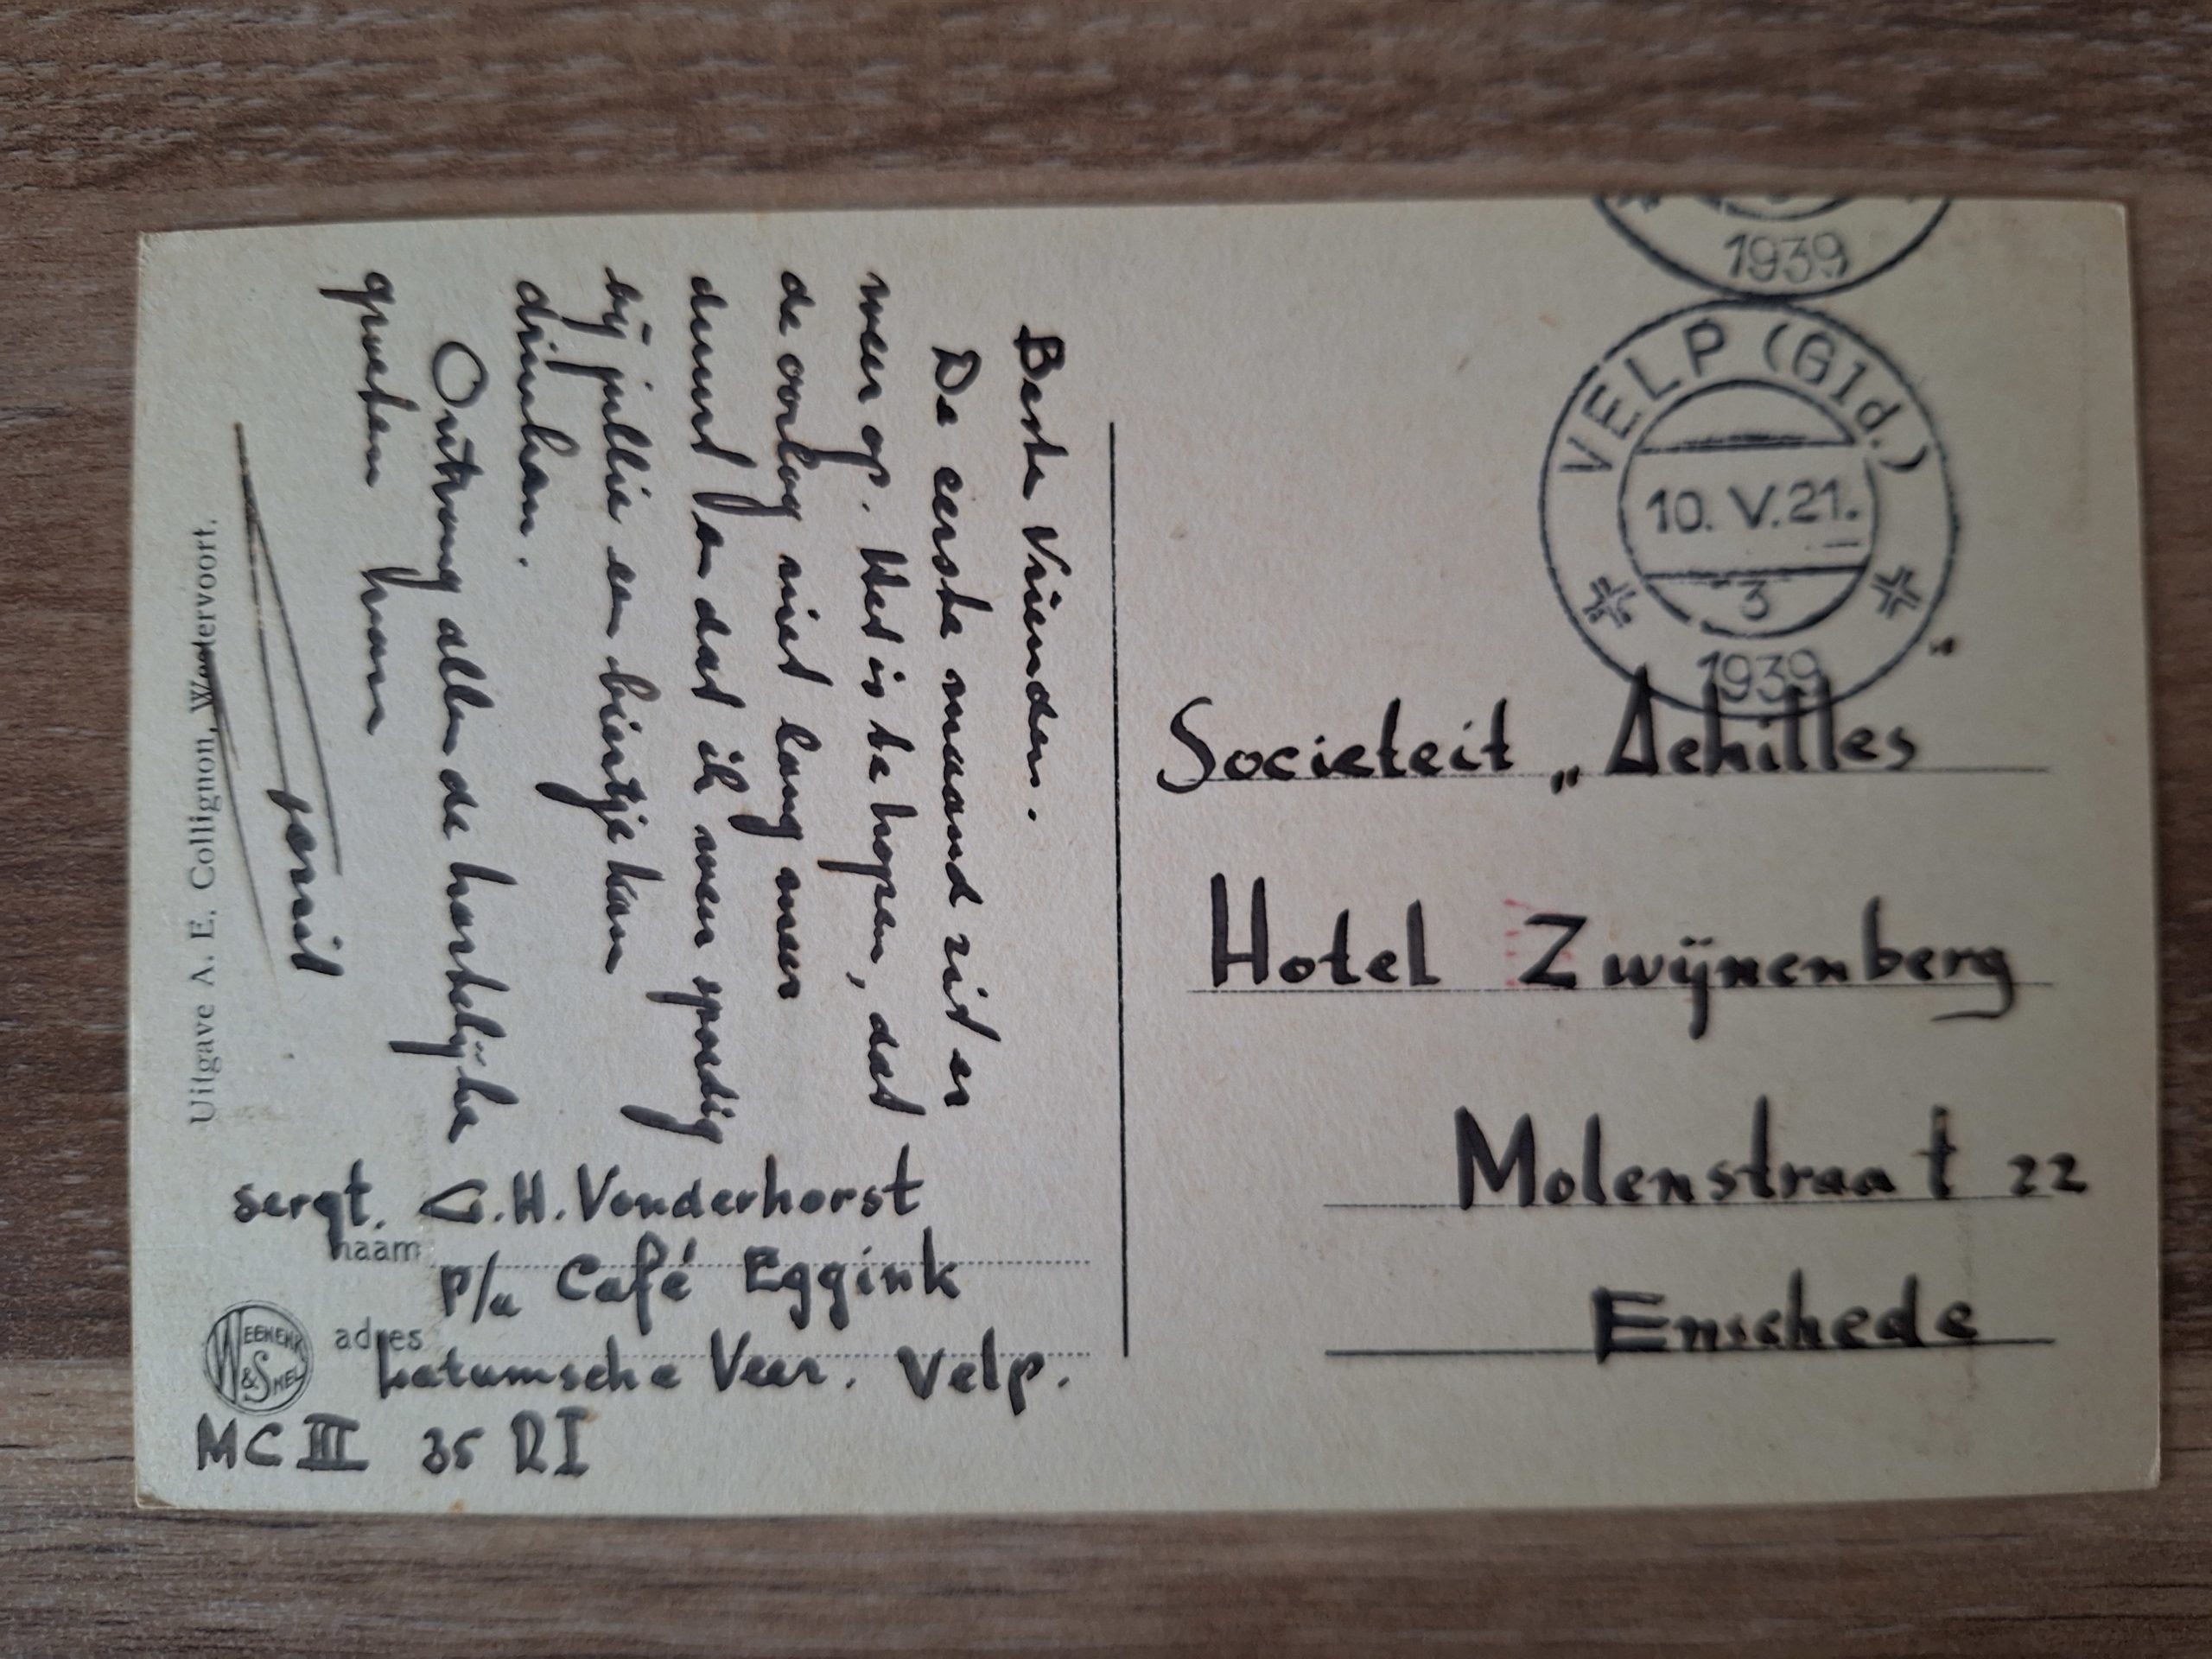 1939
VELP (Gld.)
10. V. 21.
3
1939
Societeit „Achilles”
Hotel Zwijnenberg
Molenstraat 22
Enschede
Beste Vrienden.
De eerste maand zit er
weer op. Het is te hopen, dat
de oorlog niet lang meer
duurt en dat ik weer spoedig
bij jullie een biertje kan
drinken.
Ontvang allen de hartelijke
groeten van
Uitgave A. E. Collignon, Westervoort.
sergt. G.H. Vonderhorst
naam
p/a Café Eggink
adres
Latumsche Veer. Velp.
WEENENK & SNEL
MC III 35 RI